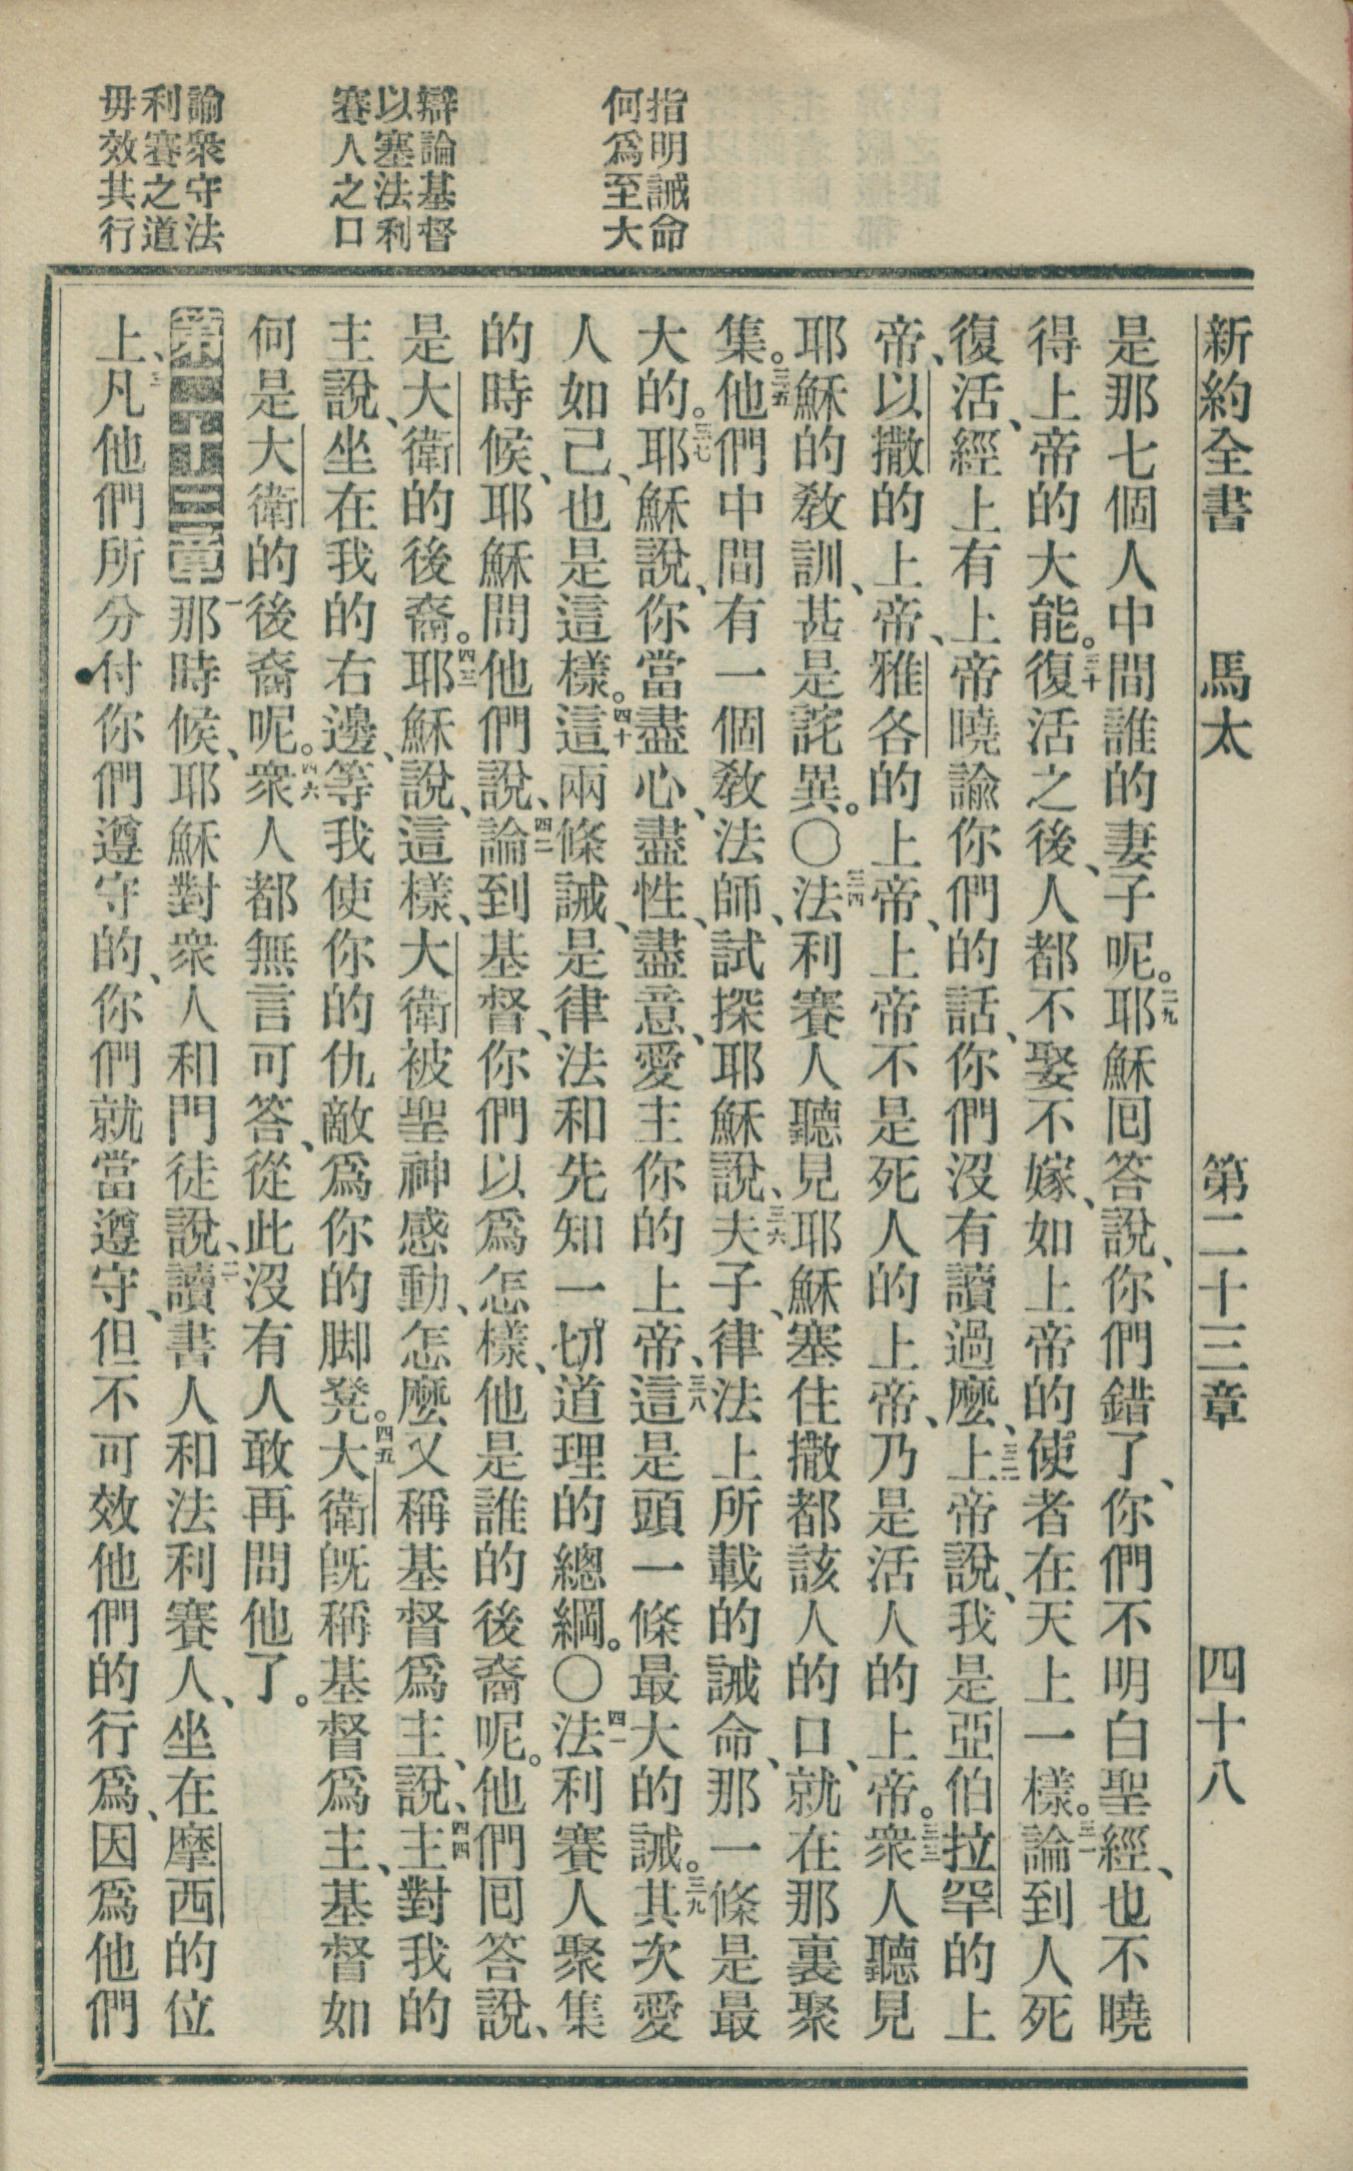 新約全書 馬太 第二十三章 四十八
指明誡命
何爲至大
辯論基督
以塞法利
賽人之口
諭衆守法
利賽之道
毋效其行
是那七個人中間誰的妻子呢。二九耶穌回答說、你們錯了、你們不明白聖經、也不曉
得上帝的大能。三十復活之後、人都不娶不嫁、如上帝的使者在天上一樣。三一論到人死
復活、經上有上帝曉諭你們的話、你們沒有讀過麼、三二上帝說、我是亞伯拉罕的上
帝、以撒的上帝、雅各的上帝、上帝不是死人的上帝、乃是活人的上帝。三三衆人聽見
耶穌的敎訓、甚是詫異。〇三四法利賽人聽見耶穌塞住撒都該人的口、就在那裏聚
集。三五他們中間有一個敎法師、試探耶穌說、三六夫子、律法上所載的誡命、那一條是最
大的。三七耶穌說、你當盡心、盡性、盡意、愛主你的上帝、三八這是頭一條最大的誡。三九其次愛
人如己、也是這樣。四十這兩條誡、是律法和先知一切道理的總綱。〇四一法利賽人聚集
的時候、耶穌問他們說、四二論到基督、你們以爲怎樣、他是誰的後裔呢。他們回答說、
是大衛的後裔。四三耶穌說、這樣、大衛被聖神感動、怎麼又稱基督爲主、說、四四主對我的
主說、坐在我的右邊、等我使你的仇敵爲你的脚凳。四五大衛旣稱基督爲主、基督如
何是大衛的後裔呢。四六衆人都無言可答、從此沒有人敢再問他了。
第二十三章 一那時候、耶穌對衆人和門徒說、二讀書人和法利賽人、坐在摩西的位
上、三凡他們所分付你們遵守的、你們就當遵守、但不可效他們的行爲、因爲他們